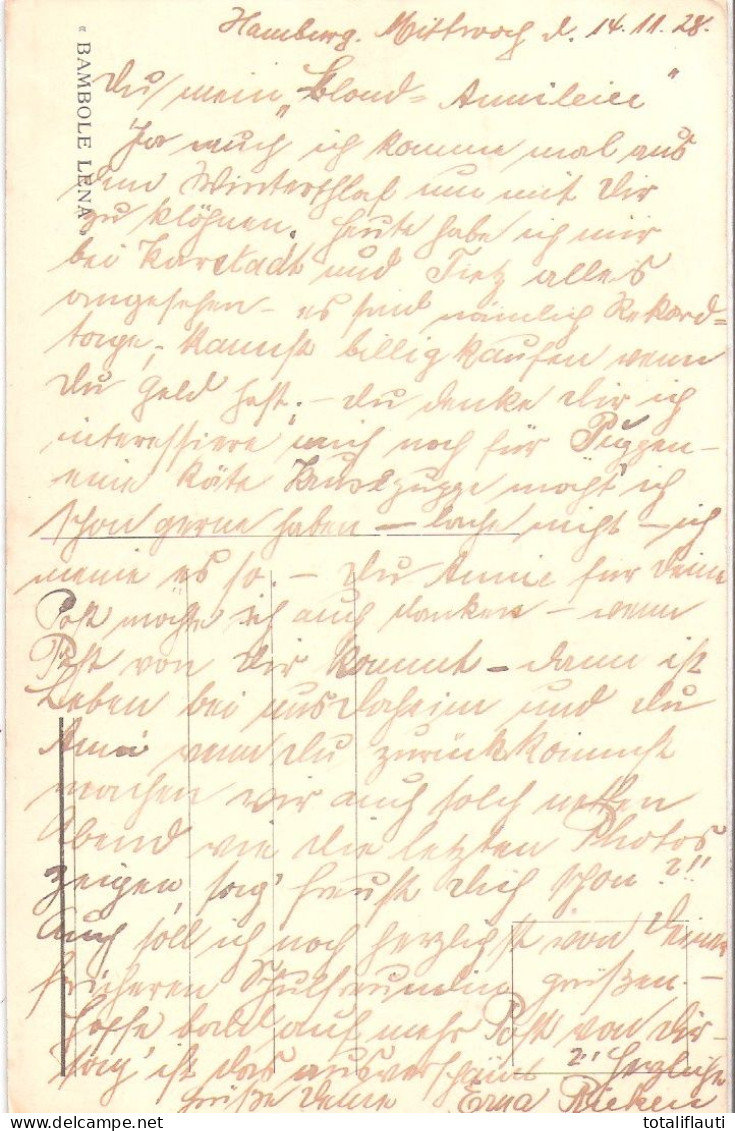 Hamburg. Mittwoch d. 14.11.28.
« BAMBOLE LENA »
Du mein „Blond-Annilein“
Ja auch ich komme mal aus
dem Winterschlaf um mit Dir
zu klöhnen. Heute habe ich mir
bei Karstadt und Tietz alles
angesehen - es sind nämlich Rekord=
tage, - kannst billig kaufen wenn
Du Geld hast. - Du denke Dir ich
interessiere mich noch für Puppen -
eine Käte Krusepuppe möcht' ich
schon gerne haben - lache nicht - ich
meine es so. - Du Annie für Deine
Post möchte ich auch danken - wenn
Post von Dir kommt - dann ist
Leben bei uns daheim und Du
Anni wenn Du zurückkommst
machen wir auch solch netten
Abend wie die letzten Photos
zeigen, sag' freust Dich schon?!!
Auch soll ich noch herzlichst von Deiner
früheren Schulfreundin grüßen. -
Hoffe bald auf mehr Post von Dir -
sag' ist das ausverschämt ?!! Herzliche
Grüße Deine Erna Rieken
totaliflauti